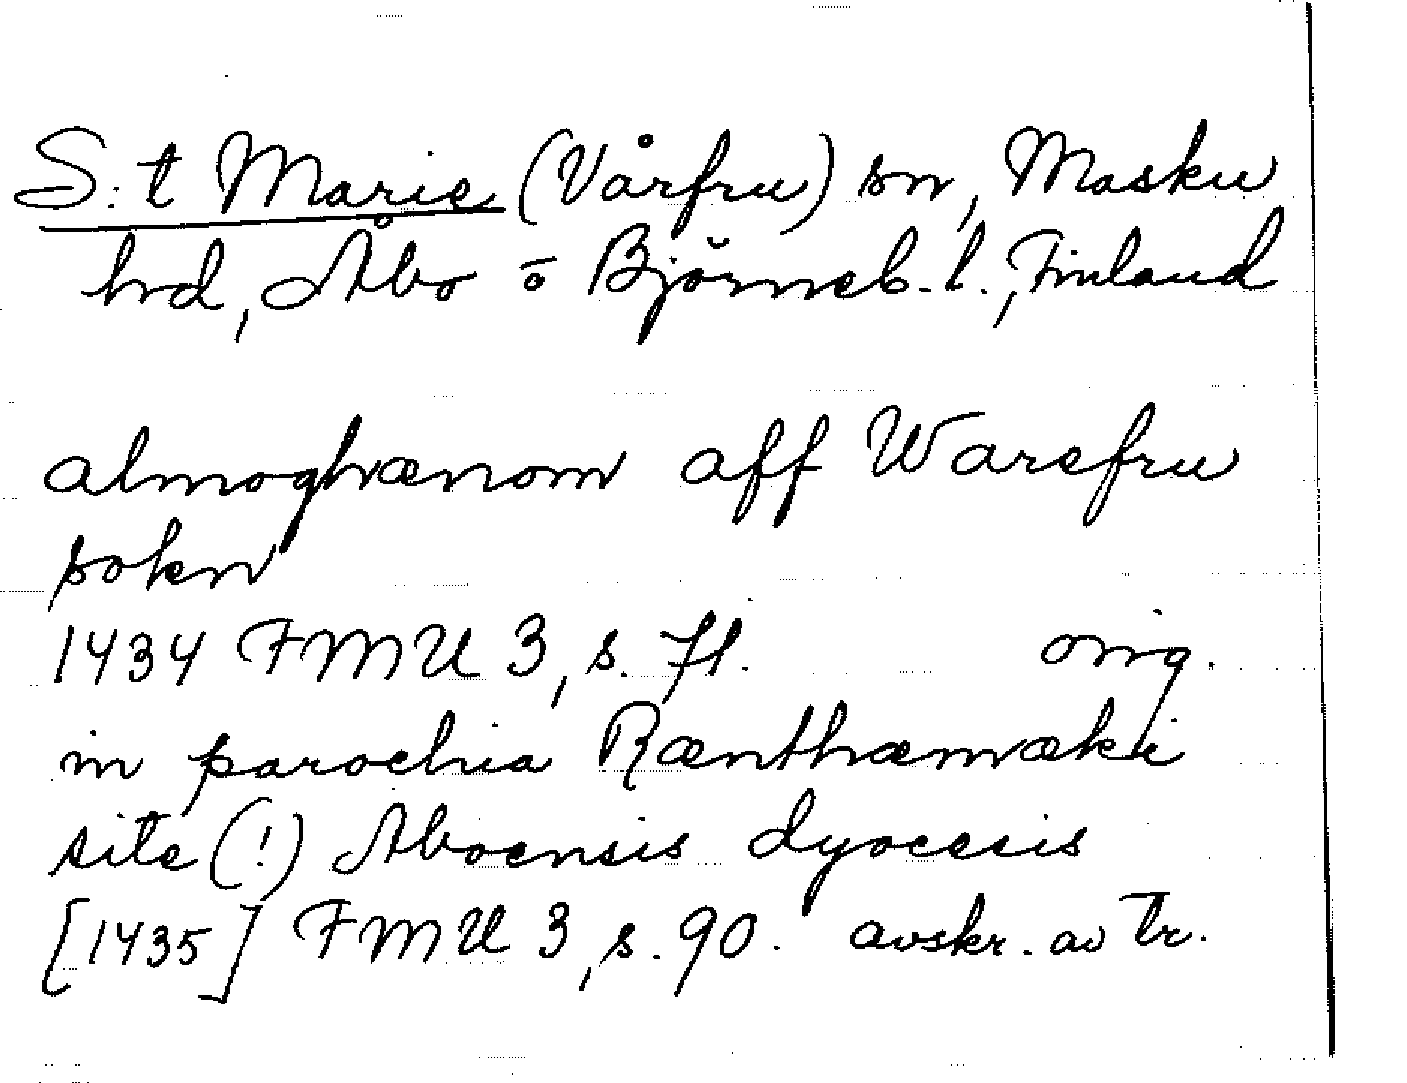 S:t Marie (Vårfru) sn, Masku
hd, Åbo o Björneb. l., Finland
almoghænom aff Warefru
sokn
1434 FMU 3, s. 71. orig.
in parochia Rænthæmæki
site (!) Aboensis dyocesis
[1435] FMU 3, s. 90. avskr. av tr.